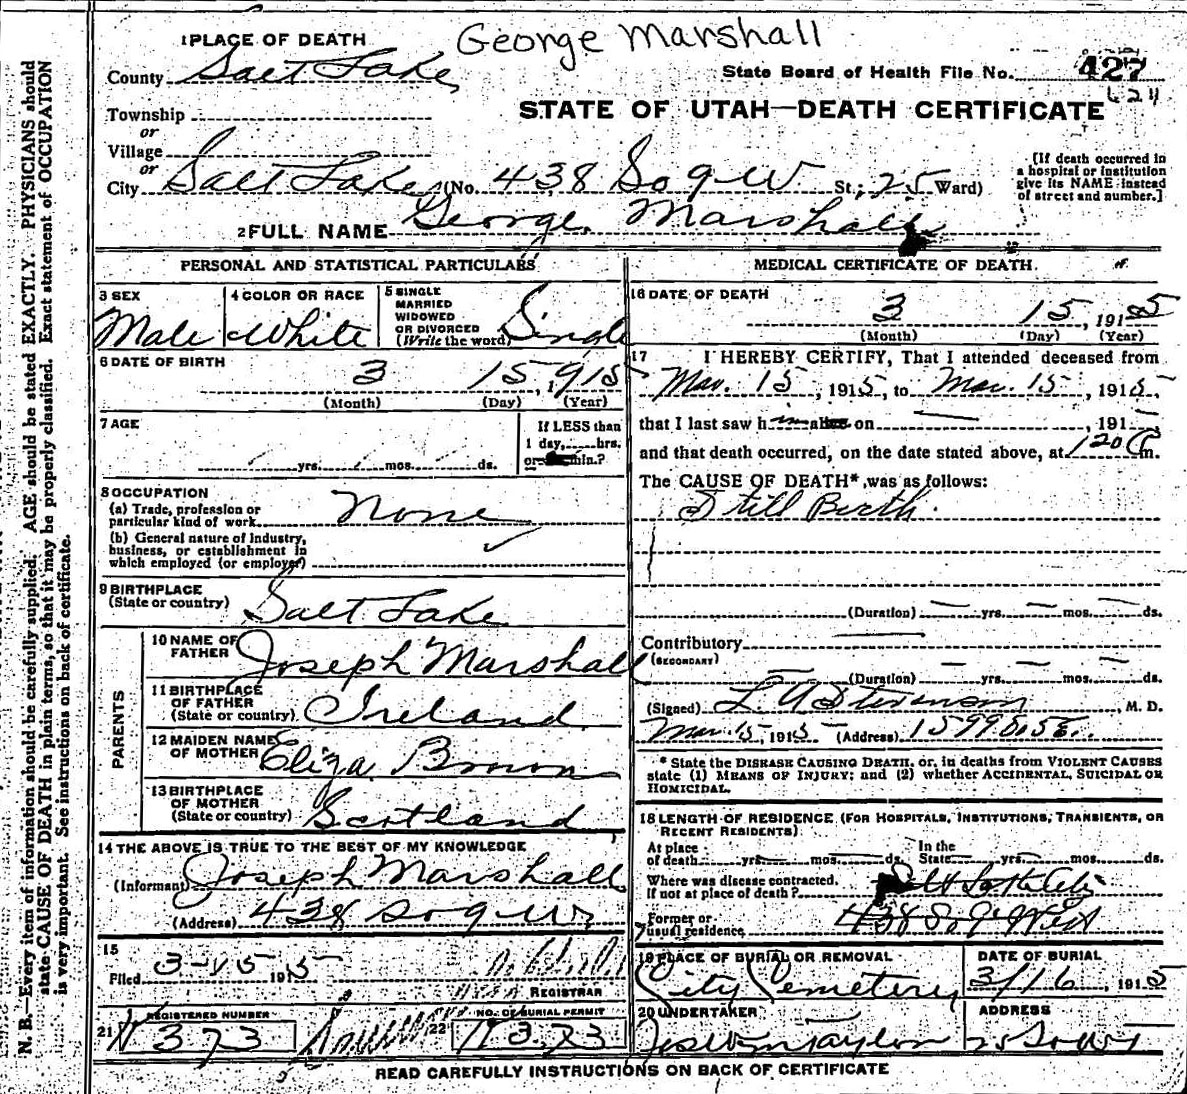 George Marshall
1 PLACE OF DEATH
County Salt Lake
State Board of Health File No. 427
STATE OF UTAH—DEATH CERTIFICATE
Township
or
Village
or
City Salt Lake (No. 438 So 9 W St.; 25 Ward)
[If death occurred in
a hospital or institution
give its NAME instead
of street and number.]
2 FULL NAME George Marshall
PERSONAL AND STATISTICAL PARTICULARS
3 SEX
Male
4 COLOR OR RACE
White
5 SINGLE
MARRIED
WIDOWED
OR DIVORCED
(Write the word) Single
6 DATE OF BIRTH
3 15, 1915
(Month) (Day) (Year)
7 AGE
yrs. mos. ds.
If LESS than
1 day, hrs.
or min.?
8 OCCUPATION
(a) Trade, profession or
particular kind of work None
(b) General nature of industry,
business, or establishment in
which employed (or employer)
9 BIRTHPLACE
(State or country) Salt Lake
PARENTS
10 NAME OF
FATHER Joseph Marshall
11 BIRTHPLACE
OF FATHER
(State or country) Ireland
12 MAIDEN NAME
OF MOTHER Eliza Brown
13 BIRTHPLACE
OF MOTHER
(State or country) Scotland
14 THE ABOVE IS TRUE TO THE BEST OF MY KNOWLEDGE
(Informant) Joseph Marshall
(Address) 438 So 9 W
15
Filed 3-15 1915
REGISTRAR
21 REGISTERED NUMBER
373
22 NO. OF BURIAL PERMIT
MEDICAL CERTIFICATE OF DEATH
16 DATE OF DEATH
3 15, 1915
(Month) (Day) (Year)
17 I HEREBY CERTIFY, That I attended deceased from
Mar. 15, 1915, to Mar. 15, 1915,
that I last saw h im alive on , 191
and that death occurred, on the date stated above, at 120 P m.
The CAUSE OF DEATH* was as follows:
Still Birth.
(Duration) yrs. mos. ds.
Contributory
(SECONDARY)
(Duration) yrs. mos. ds.
(Signed) L. A. Stevenson, M. D.
Mar 15, 1915 (Address)
* State the DISEASE CAUSING DEATH, or, in deaths from VIOLENT CAUSES
state (1) MEANS OF INJURY; and (2) whether ACCIDENTAL, SUICIDAL OR
HOMICIDAL.
18 LENGTH OF RESIDENCE (FOR HOSPITALS, INSTITUTIONS, TRANSIENTS, OR
RECENT RESIDENTS)
At place
of death yrs. mos. ds.
In the
State yrs. mos. ds.
Where was disease contracted,
if not at place of death? Salt Lake City
Former or
usual residence 438 So 9 West
19 PLACE OF BURIAL OR REMOVAL
City Cemetery
DATE OF BURIAL
3/16, 1915
20 UNDERTAKER
Jos Wm Taylor
ADDRESS
READ CAREFULLY INSTRUCTIONS ON BACK OF CERTIFICATE
N. B.—Every item of information should be carefully supplied. AGE should be stated EXACTLY. PHYSICIANS should
state CAUSE OF DEATH in plain terms, so that it may be properly classified. Exact statement of OCCUPATION
is very important. See instructions on back of certificate.